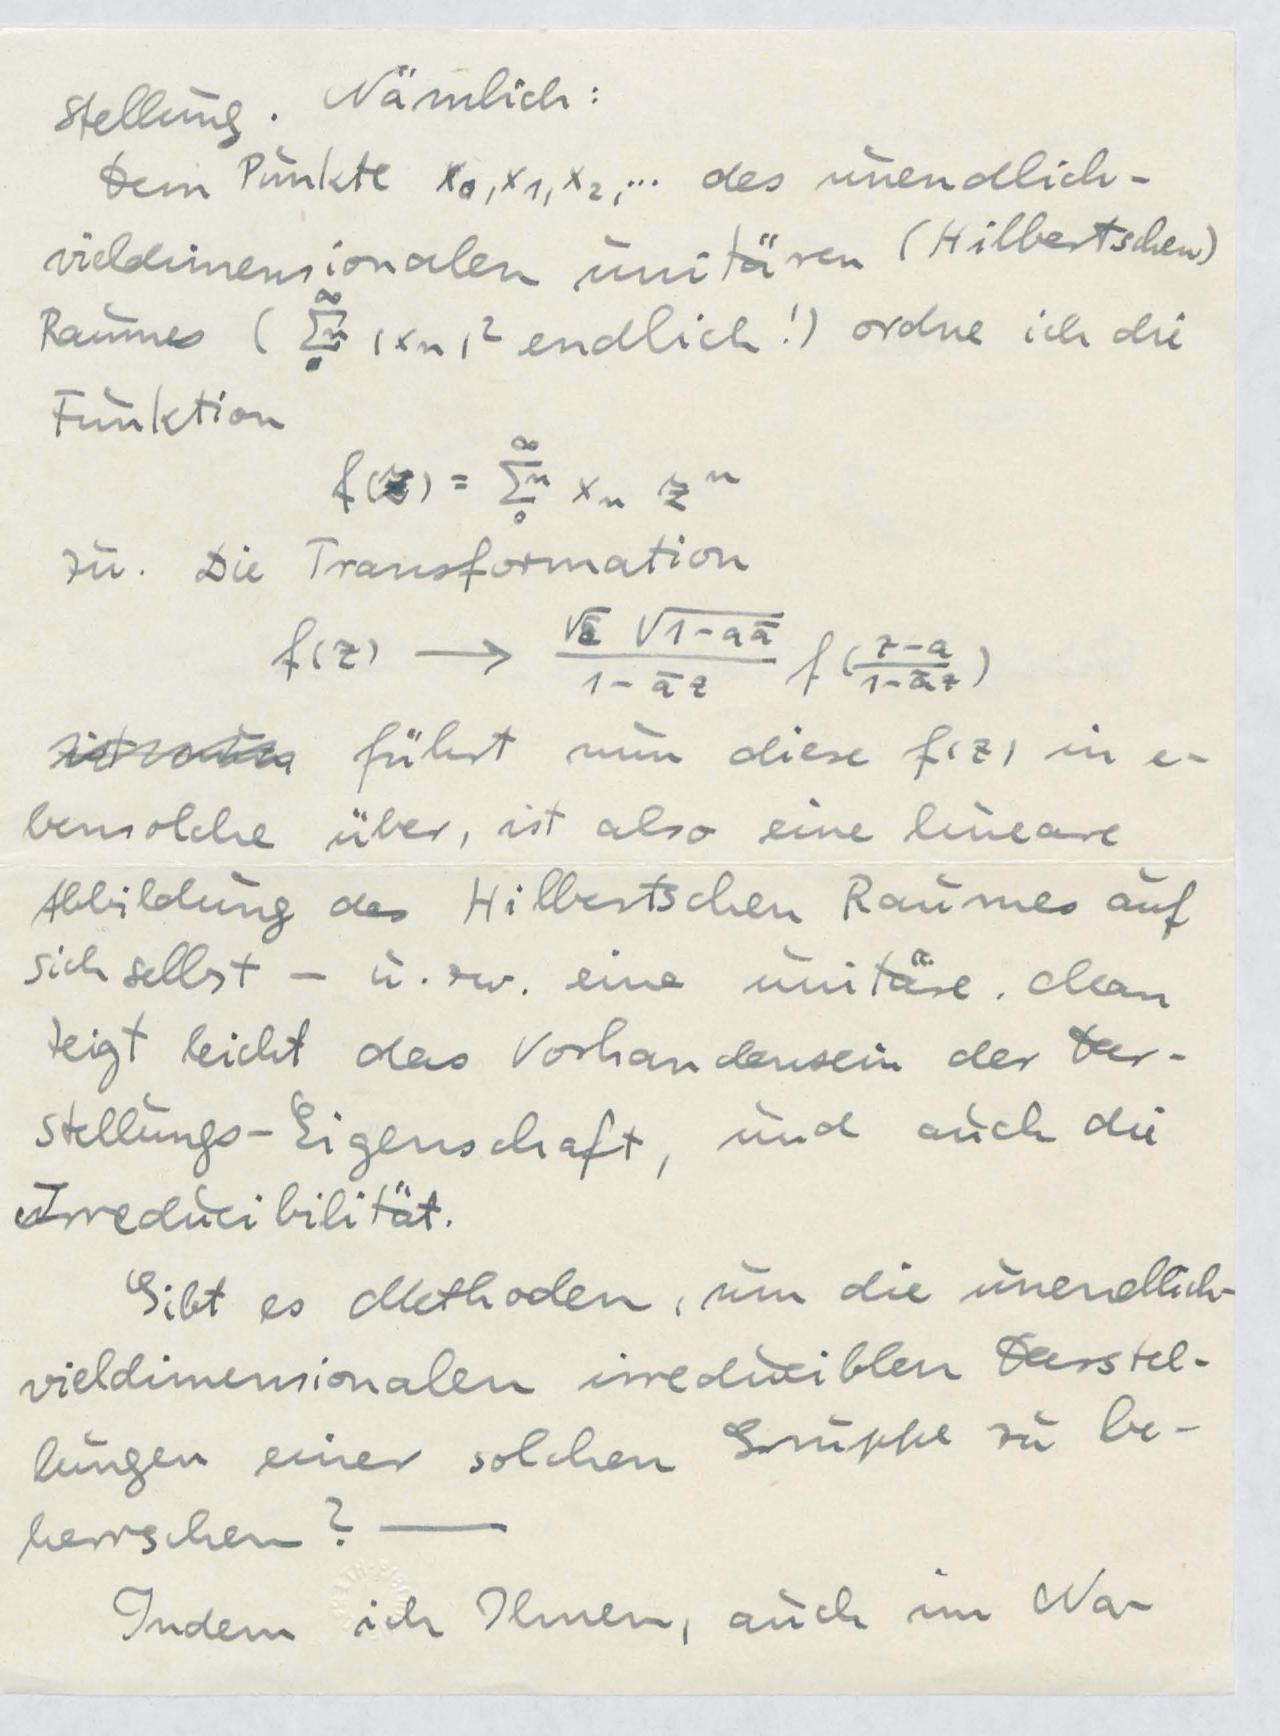 stellung. Nämlich:
Dem Punkte x₀, x₁, x₂, ... des unendlich-
vieldimensionalen unitären (Hilbertschen)
Raumes ( ∑₀^∞ₙ |xₙ|² endlich!) ordne ich die
Funktion
f(z) = ∑₀^∞ₙ xₙ zⁿ
zu. Die Transformation
f(z) → (√ε √(1-aā))/(1-āz) f((z-a)/(1-āz))
führt nun diese f(z) in e-
bensolche über, ist also eine lineare
Abbildung des Hilbertschen Raumes auf
sich selbst – u. zw. eine unitäre. Man
zeigt leicht das Vorhandensein der Dar-
stellungs-Eigenschaft, und auch die
Irreducibilität.
Gibt es Methoden, um die unendlich-
vieldimensionalen irreduciblen Darstel-
lungen einer solchen Gruppe zu be-
herrschen? —
Indem ich Ihnen, auch im Na-